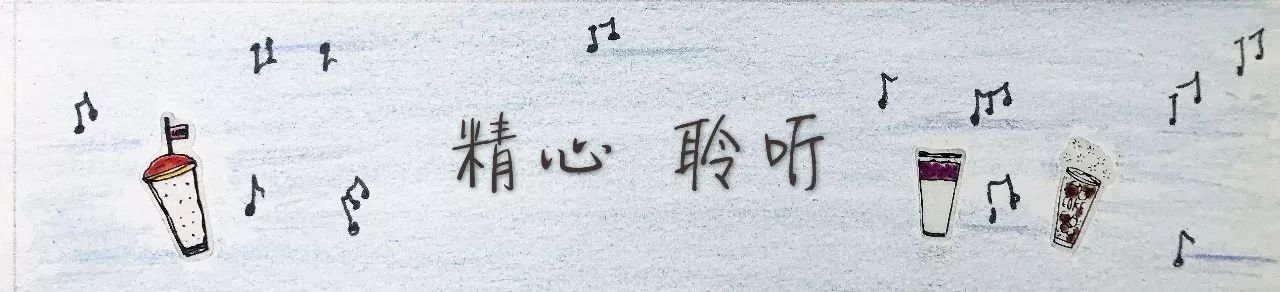 精心 聆听
COFE